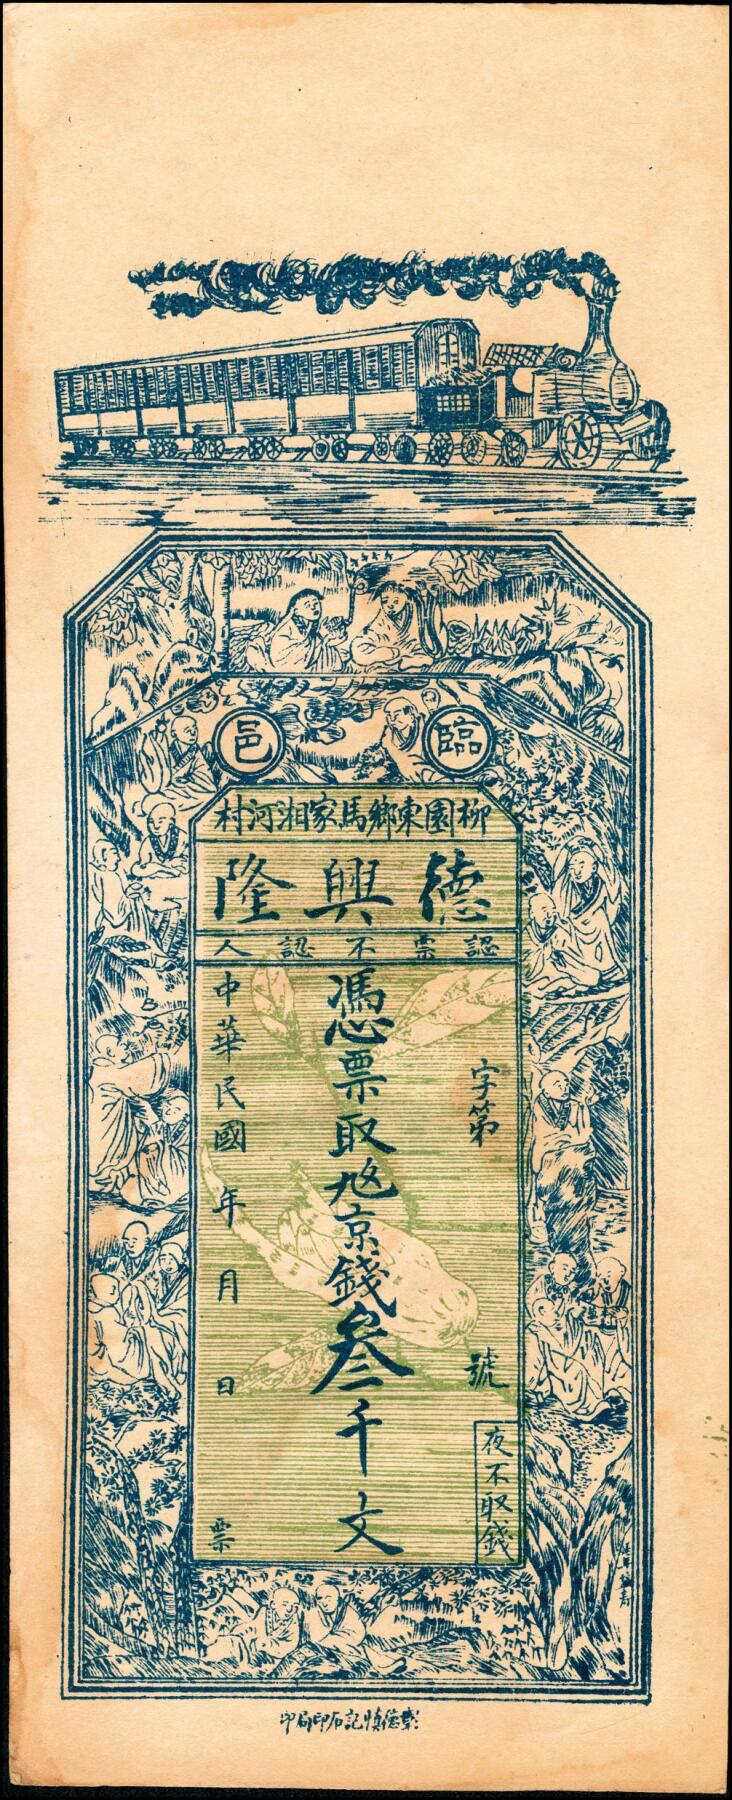 臨邑
柳園東鄉馬家湘河村
德興隆
認票不認人
字第號
夜不取錢
憑票取九六京錢叁千文
中華民國年月日票
彰德慎記石印局印